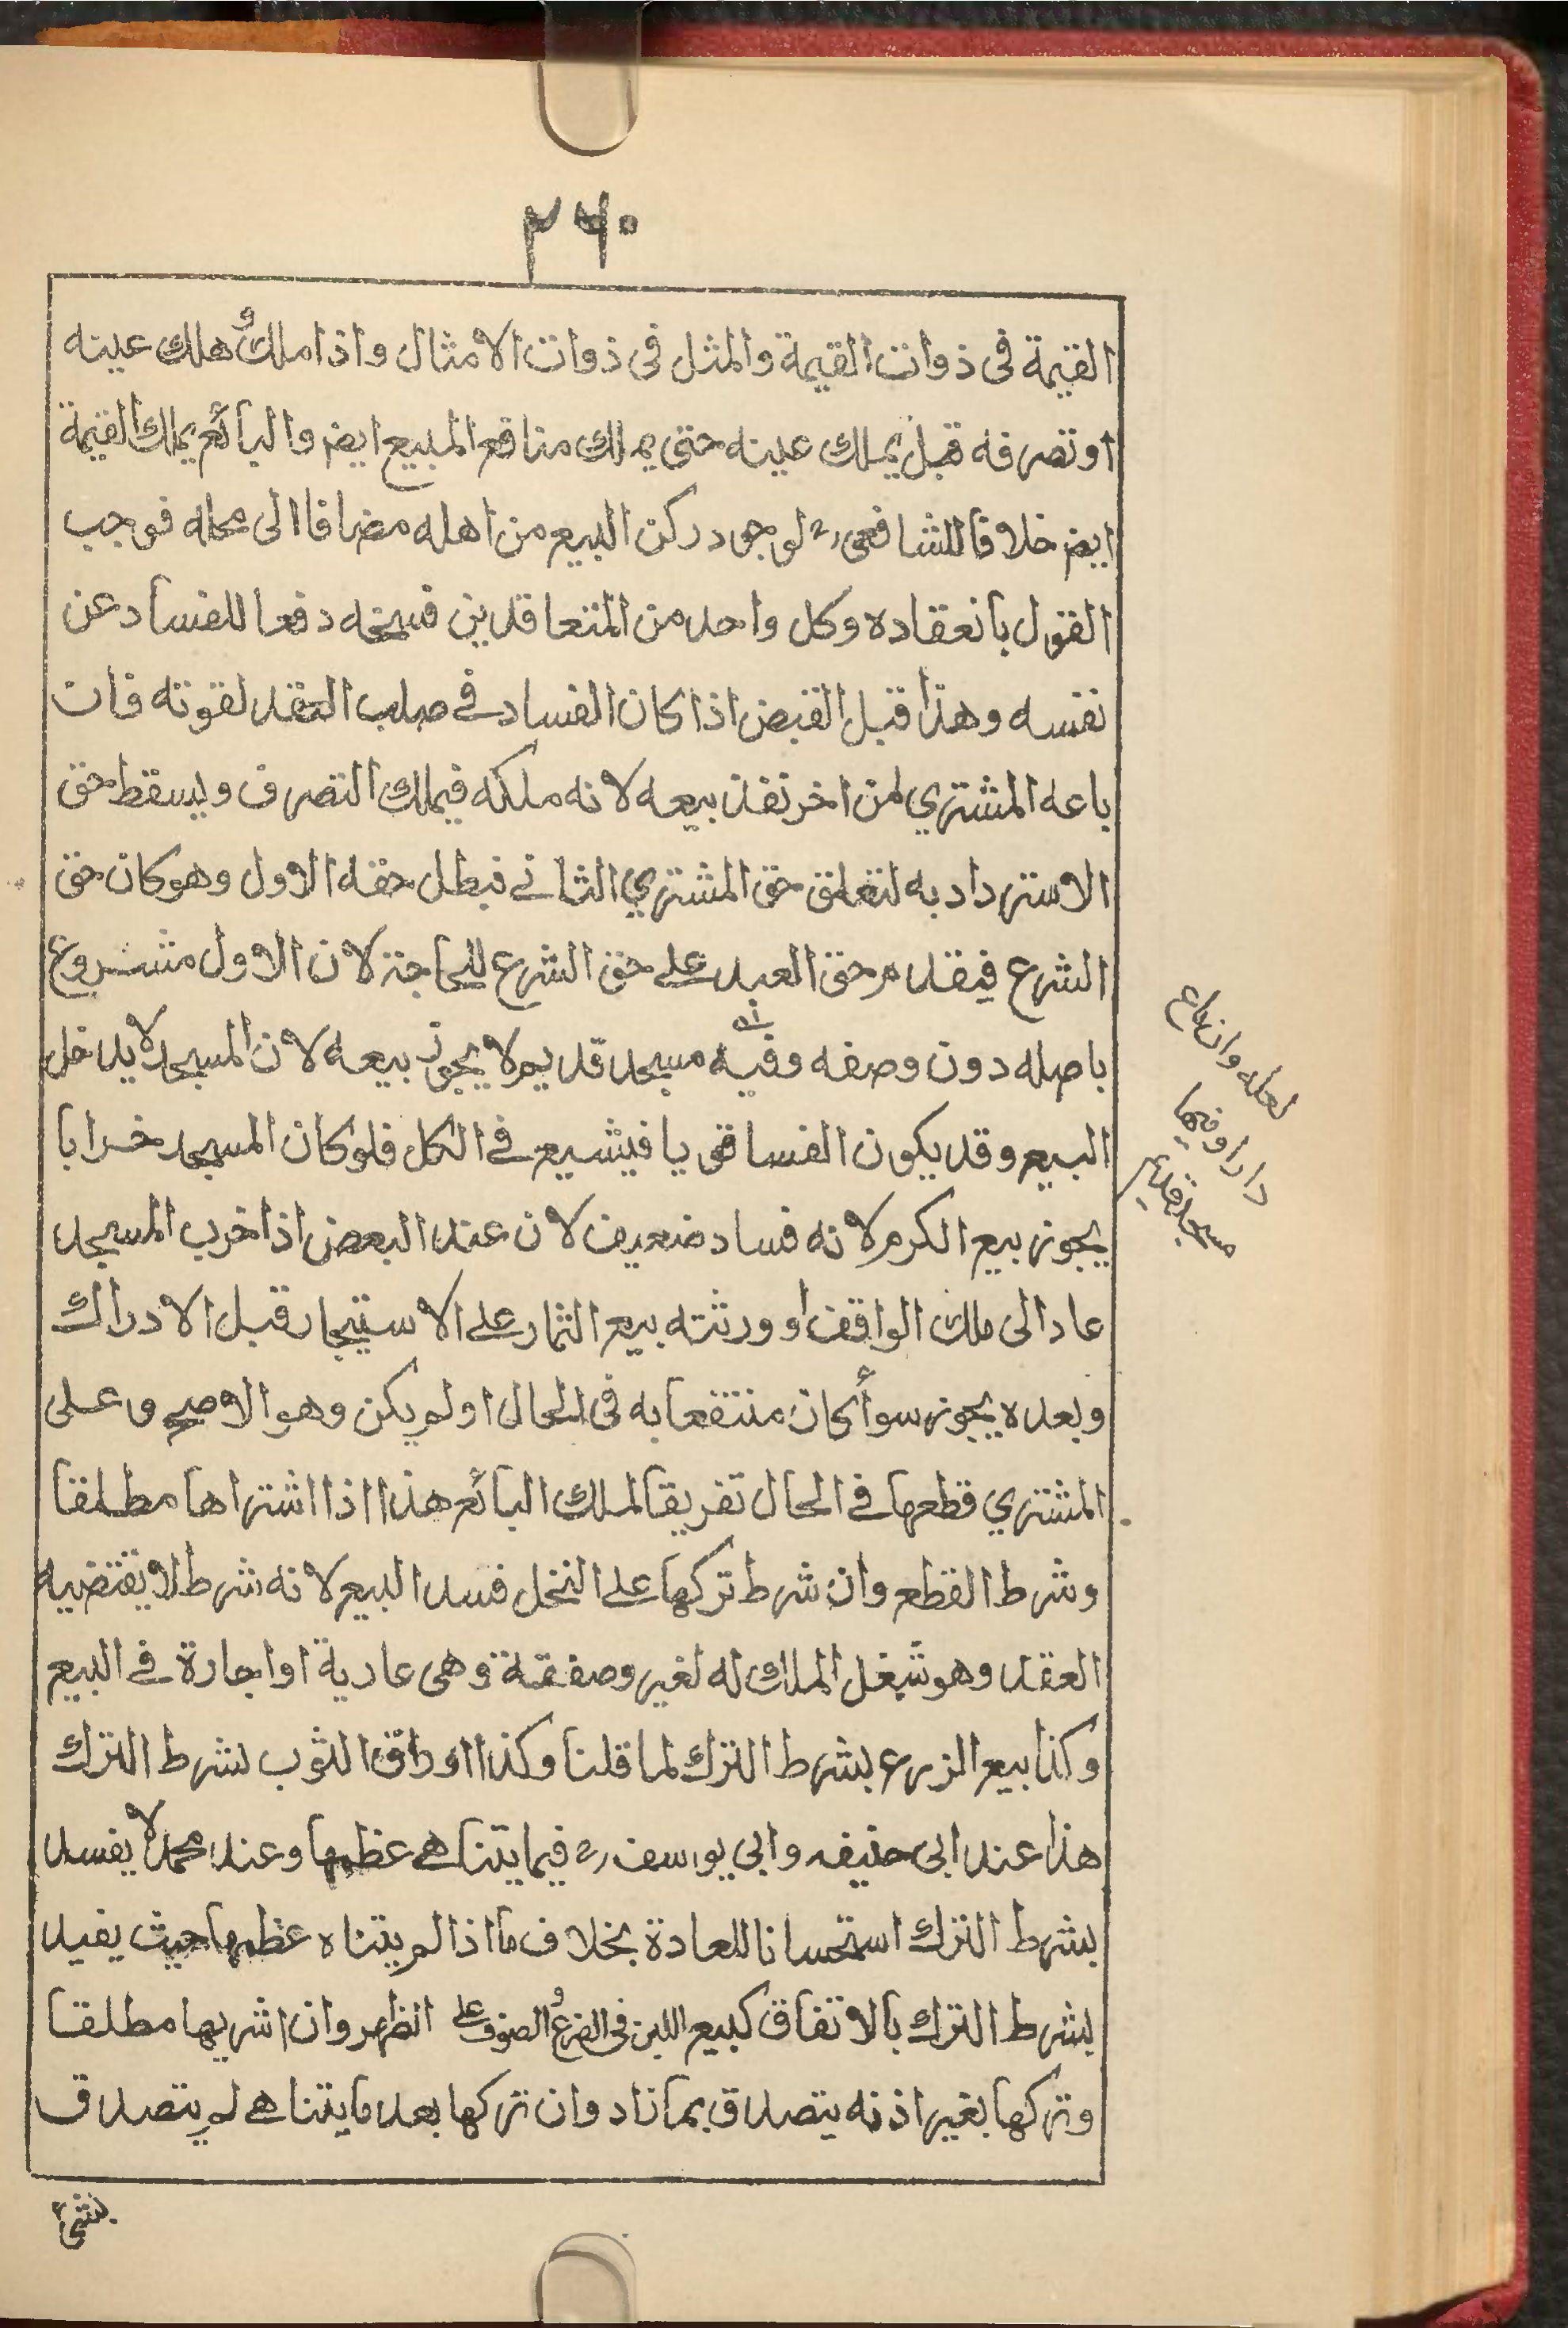 ٢٦٠
القيمة فى ذوات القيمة والمثل فى ذوات الامثال واذا ملك وهلك عينه
او تصرفه قبل يملك عينه حتى يملك منافع المبيع ايضر والبائع يملك القيمة
ايضر خلافا للشافعى رح لوجود ركن البيع من اهله مضافا الى محله فوجب
القول بانعقاده وكل واحد من المتعاقدين فسخه دفعا للفساد عن
نفسه وهذا قبل القبض اذا كان الفساد في صلب العقد لقوته فان
باعه المشتري لمن اخر نفذ بيعه لانه ملكه فيملك التصرف ويسقط حق
الاسترداد به لتعلق حق المشتري الثاني فبطل حقه الاول وهو كان حق
الشرع فيقدم حق العبد على حق الشرع للحاجة لان الاول مشروع
باصله دون وصفه وفيه مسجد قديم لا يجوز بيعه لان المسجد لا يدخل
البيع وقد يكون الفسا قويا فيشيع في الكل فلو كان المسجد خرابا
يجوز بيع الكرم لانه فساد ضعيف لان عند البعض اذا خرب المسجد
عاد الى ملك الواقف او ورثته بيع الثمار على الاستيجار قبل الادراك
وبعده يجوز سوأ كان منتفعا به فى الحال او لم يكن وهو الاصح وعلى
المشتري قطعها في الحال تفريقا لملك البائع هذا اذا اشتراها مطلقا
وشرط القطع وان شرط تركها على النخل فسد البيع لانه شرط لا يقتضيه
العقد وهو شغل الملك له لغير وصفقة وهى عارية او اجارة في البيع
وكذا بيع الزرع بشرط الترك لما قلنا وكذا اوراق التوب بشرط الترك
هذا عند ابى حنيفه وابي يوسف رح فيما يتناهي عظمها وعند محمد لا يفسد
بشرط الترك استحسانا للعادة بخلاف ما اذا لم يتناه عظمها حيث يفيد
بشرط الترك بالاتفاق كبيع اللبن فى الضرع والصوف على الظهر وان اشريها مطلقا
وتركها بغير اذنه يتصدق بما زاد وان تركها بعد ما يتناهي لم يتصدق
بشئ
لعله وان باع
دارا وفيها
مسجد قديم